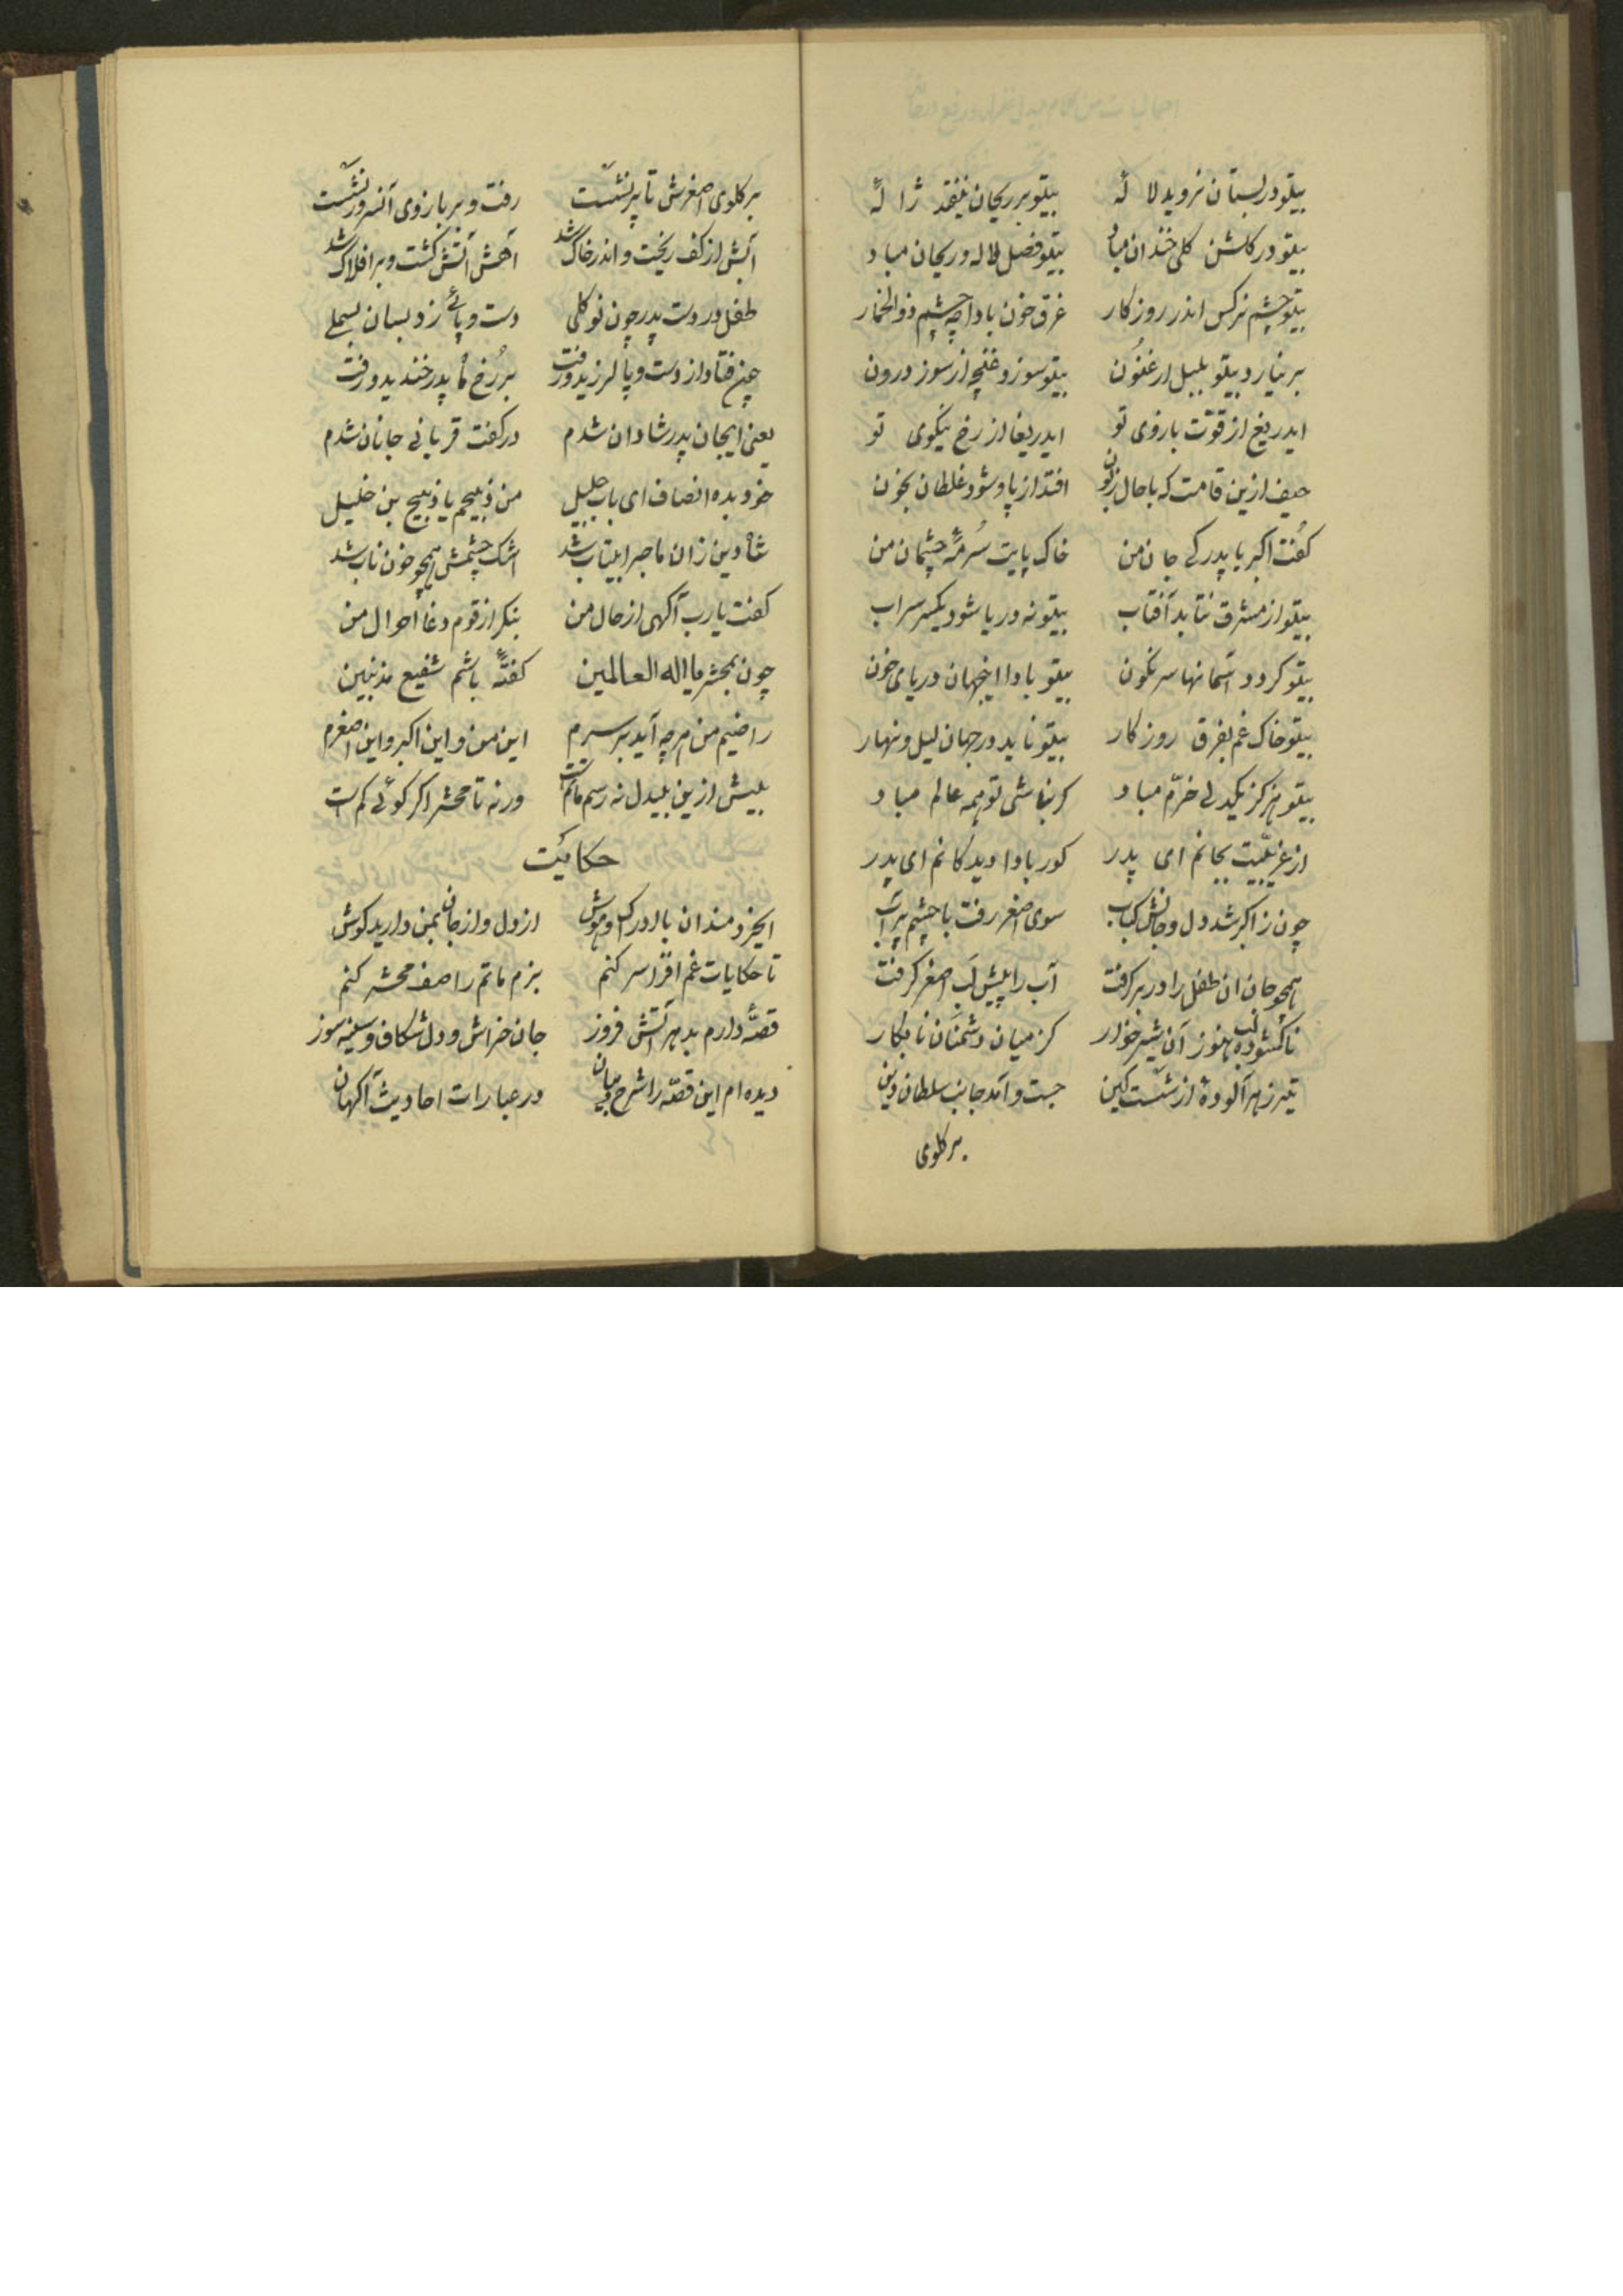 بیتو در بستان نروید لاله بیتو بر ریحان نیفتد ژاله
بیتو در گلشن گلی خندان مباد بیتو فصل لاله و ریحان مباد
بیتو چشم نرگس اندر روزکار غرق خون بادا چه چشم ذوالخمار
بر نیارد بیتو بلبل ارغنون بیتو سوزد غنچه از سوز درون
ایدریغ از قوّت بازوی تو ایدریغا از رخ نیکوی تو
حیف ازین قامت که با حال زبون افتد از پا و شود غلطان بخون
کفت اکبر با پدر کے جان من خاک پایت سُرمۀ چشمان من
بیتو از مشرق نتابد آفتاب بیتو نه دریا شود یکسر سراب
بیتو کردد آسمانها سرنکون بیتو بادا اینجهان دریای خون
بیتو خاک غم بفرق روزکار بیتو ناید در جهان لیل و نهار
بیتو هرکز یکدلی خرّم مباد کر نباشی تو همه عالم مباد
از غریبیت بجانم ای پدر کور بادا دیدکانم ای پدر
چون ز اکبر شد دل و جانش کباب سوی اصغر رفت با چشم پر آب
همچو جان ان طفل را در بر کرفت آب را پیش لب اصغر کرفت
ناکشوده لب هنوز آن شیر خوار کز میان دشمنان نابکار
تیر زهر آلودۀ از شست کین جست و آمد جانب سلطان دین
بر کلوی
بر کلوی اصغرش تا پر نشست رفت و بر بازوی آنسرور نشست
آبش از کف ریخت و اندر خاک شد آهش آتش کشت و بر افلاک شد
طفل در دست پدر چون نو کلی دست و پائے زد بسان بسملے
چین فتاد از دست و پا لرزید و رفت بر رُخ پدر خندید و رفت
یعنی ایجان پدر شادان شدم در کفت قربانی جانان شدم
خود بده انصاف ای باب جلیل من ذبیحم یا ذبیح بن خلیل
شاه دین زان ماجرا بیتاب شد اشک چشمش همچو خون ناب شد
کفت یارب آکهی از حال من بنکر از قوم دغا احوال من
چون بمحشر یا اله العالمین کفتۀ باشم شفیع مذنبین
راضیم من هرچه آید بر سرم این من و این اکبر و این اصغرم
بیش ازین بیدل نه رسم ماتم است ورنه تا محشر اکر کوئی کم است
حکایت
ایخردمندان با ادراک و هوش از دل و از جان بمن دارید کوش
تا حکایات غم افزا سر کنم بزم ماتم را صف محشر کنم
قصّۀ دارم بدهر آتش فروز جان خراش و دل شکاف و سینه سوز
دیده ام این قصّه را شرح و بیان در عبارات احادیث آکهان